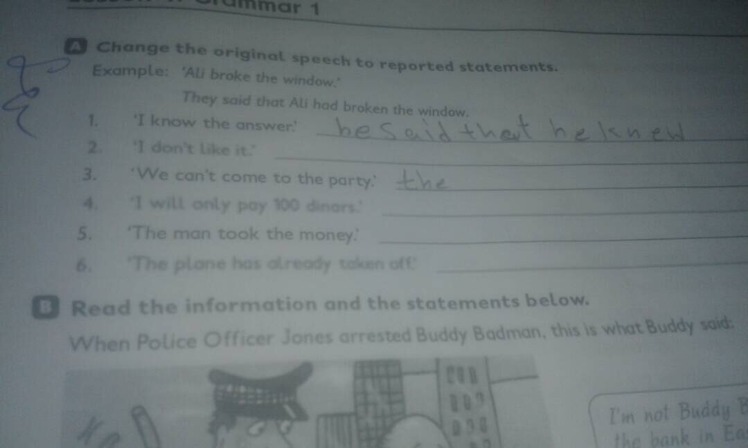 Grammar 1
A Change the original speech to reported statements.
Example: 'Ali broke the window.'
They said that Ali had broken the window.
1. 'I know the answer.' he said that he knew
2. 'I don't like it.'
3. 'We can't come to the party.' the
4. 'I will only pay 100 dinars.'
5. 'The man took the money.'
6. 'The plane has already taken off.'
B Read the information and the statements below.
When Police Officer Jones arrested Buddy Badman, this is what Buddy said:
I'm not Buddy
the bank in